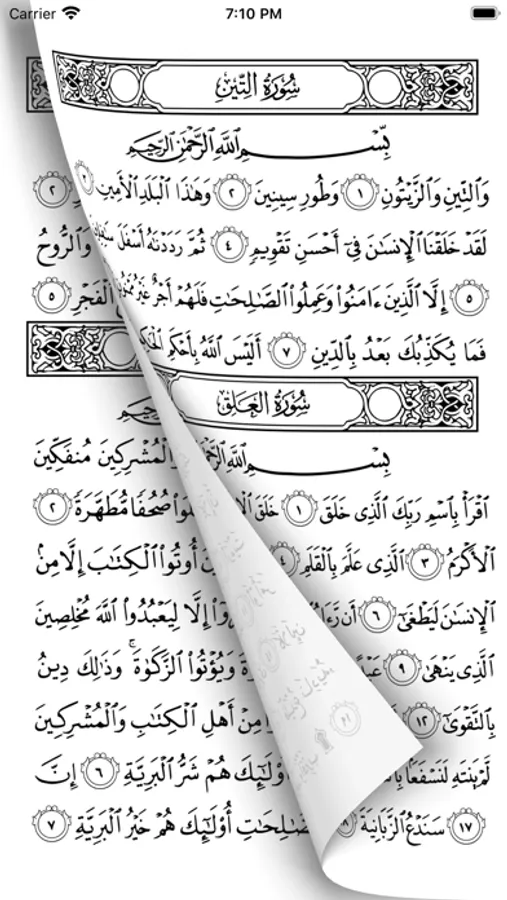 Carrier 7:10 PM
سُورَةُ التِّينِ
بِسْمِ ٱللَّهِ ٱلرَّحْمَٰنِ ٱلرَّحِيمِ
وَٱلتِّينِ وَٱلزَّيْتُونِ ١ وَطُورِ سِينِينَ ٢ وَهَٰذَا ٱلْبَلَدِ ٱلْأَمِينِ ٣ ٢
لَقَدْ خَلَقْنَا ٱلْإِنسَٰنَ فِىٓ أَحْسَنِ تَقْوِيمٍ ٤ ثُمَّ رَدَدْنَٰهُ أَسْفَلَ سَٰفِلِينَ وَٱلرُّوحُ
٥ إِلَّا ٱلَّذِينَ ءَامَنُوا۟ وَعَمِلُوا۟ ٱلصَّٰلِحَٰتِ فَلَهُمْ أَجْرٌ غَيْرُ مَمْنُونٍ ٱلْفَجْرِ ٥
فَمَا يُكَذِّبُكَ بَعْدُ بِٱلدِّينِ ٧ أَلَيْسَ ٱللَّهُ بِأَحْكَمِ ٱلْحَٰكِمِينَ
سُورَةُ العَلَقِ
بِسْمِ ٱللَّهِ ٱلرَّحْمَٰنِ وَٱلْمُشْرِكِينَ مُنفَكِّينَ
ٱقْرَأْ بِٱسْمِ رَبِّكَ ٱلَّذِى خَلَقَ ١ خَلَقَ صُحُفًا مُّطَهَّرَةً ٢
ٱلْأَكْرَمُ ٣ ٱلَّذِى عَلَّمَ بِٱلْقَلَمِ ٤ أُوتُوا۟ ٱلْكِتَٰبَ إِلَّا مِنۢ
ٱلْإِنسَٰنَ لَيَطْغَىٰٓ ٦ أَن رَّءَاهُ إِلَّا لِيَعْبُدُوا۟ ٱللَّهَ مُخْلِصِينَ
ٱلَّذِى يَنْهَىٰ ٩ وَيُؤْتُوا۟ ٱلزَّكَوٰةَ ۚ وَذَٰلِكَ دِينُ
بِٱلتَّقْوَىٰٓ ١٢ مِنْ أَهْلِ ٱلْكِتَٰبِ وَٱلْمُشْرِكِينَ
لَمْ يَنتَهِ لَنَسْفَعًۢا أُو۟لَٰٓئِكَ هُمْ شَرُّ ٱلْبَرِيَّةِ ٦ إِنَّ
١٧ سَنَدْعُ ٱلزَّبَانِيَةَ ١٨ ٱلصَّٰلِحَٰتِ أُو۟لَٰٓئِكَ هُمْ خَيْرُ ٱلْبَرِيَّةِ ٧